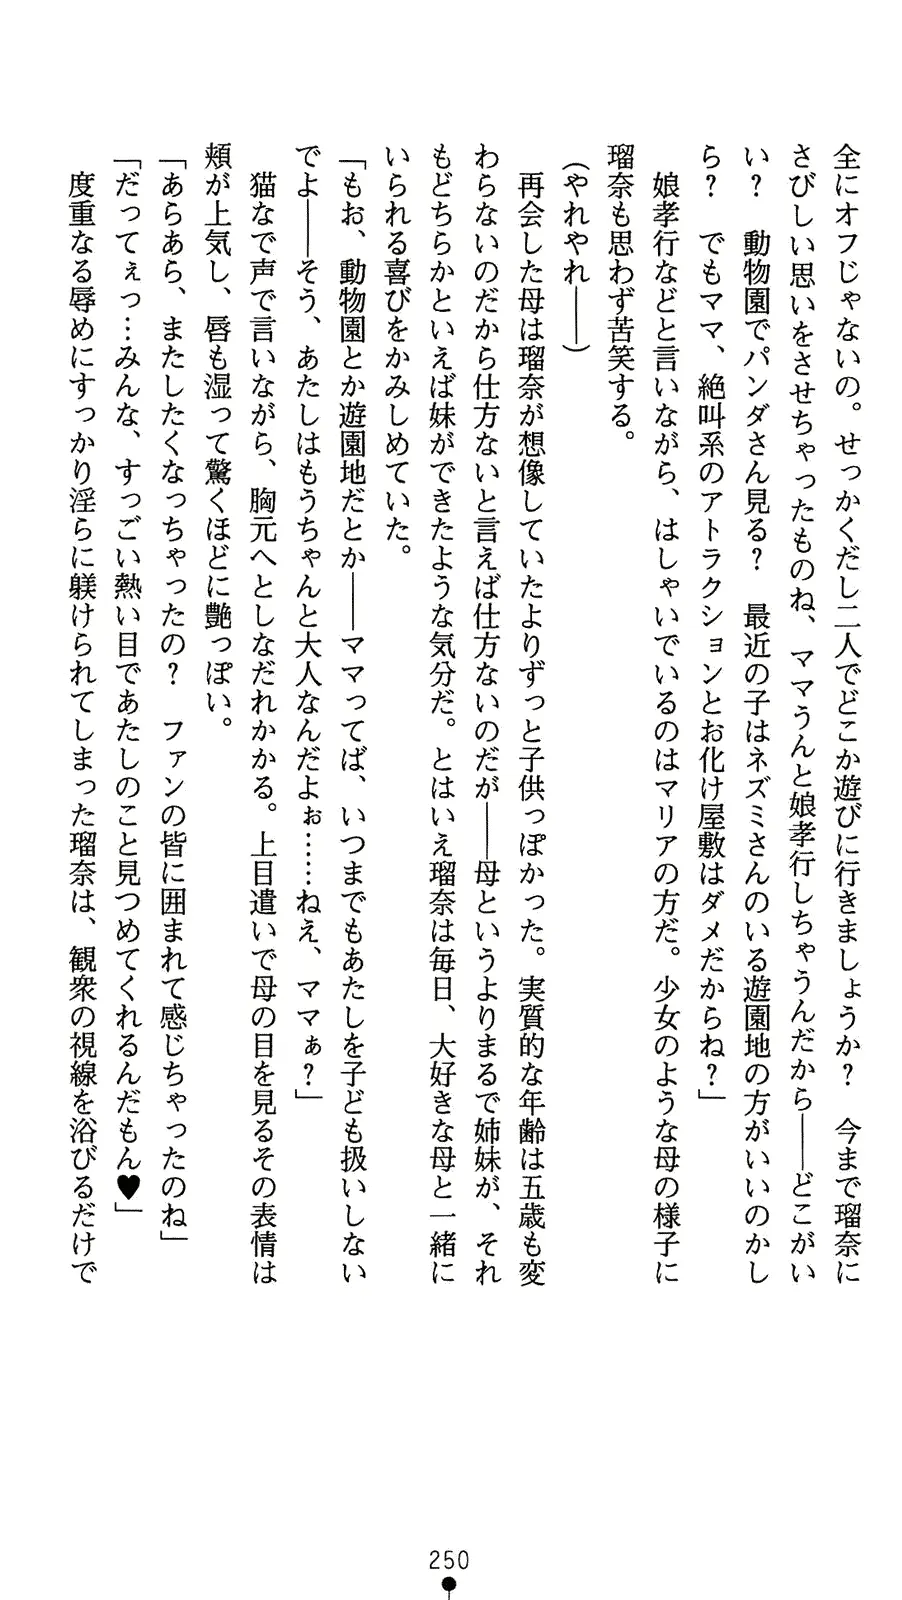 全にオフじゃないの。せっかくだし二人でどこか遊びに行きましょうか？　今まで瑠奈に
さびしい思いをさせちゃったものね、ママうんと娘孝行しちゃうんだから――どこがい
い？　動物園でパンダさん見る？　最近の子はネズミさんのいる遊園地の方がいいのかし
ら？　でもママ、絶叫系のアトラクションとお化け屋敷はダメだからね？」
　娘孝行などと言いながら、はしゃいでいるのはマリアの方だ。少女のような母の様子に
瑠奈も思わず苦笑する。
（やれやれ――）
　再会した母は瑠奈が想像していたよりずっと子供っぽかった。実質的な年齢は五歳も変
わらないのだから仕方ないと言えば仕方ないのだが――母というよりまるで姉妹が、それ
もどちらかといえば妹ができたような気分だ。とはいえ瑠奈は毎日、大好きな母と一緒に
いられる喜びをかみしめていた。
「もお、動物園とか遊園地だとか――ママってば、いつまでもあたしを子ども扱いしない
でよ――そう、あたしはもうちゃんと大人なんだよぉ……ねえ、ママぁ？」
　猫なで声で言いながら、胸元へとしなだれかかる。上目遣いで母の目を見るその表情は
頬が上気し、唇も湿って驚くほどに艶っぽい。
「あらあら、またしたくなっちゃったの？　ファンの皆に囲まれて感じちゃったのね」
「だってぇっ…みんな、すっごい熱い目であたしのこと見つめてくれるんだもん♥」
　度重なる辱めにすっかり淫らに躾けられてしまった瑠奈は、観衆の視線を浴びるだけで
250